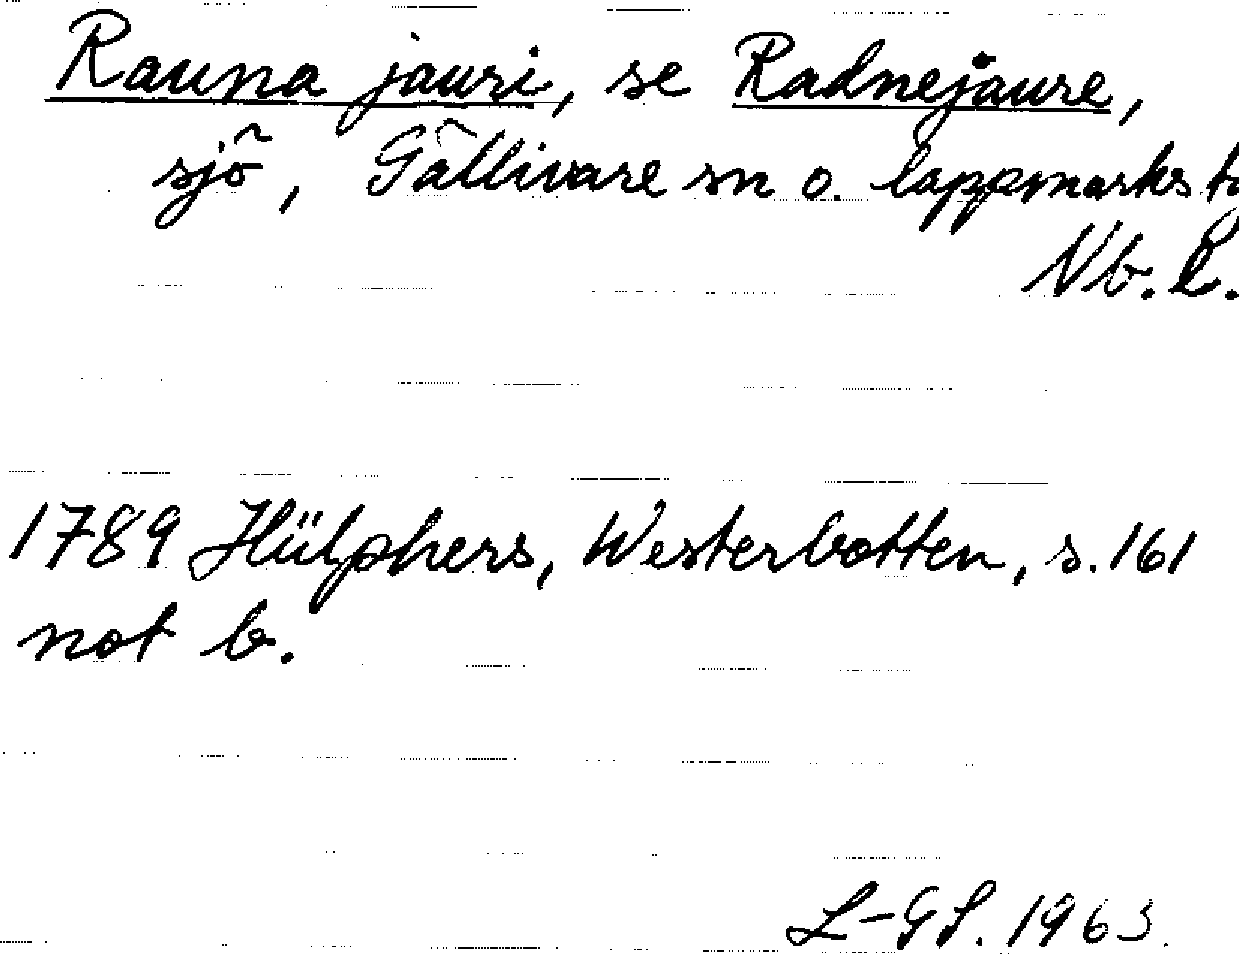 Rauna jauri, se Radnejaure,
sjö, Gällivare sn o. lappmarks t
Nb. l.
1789 Hülphers, Westerbotten, s. 161
not b.
L-GL. 1963.